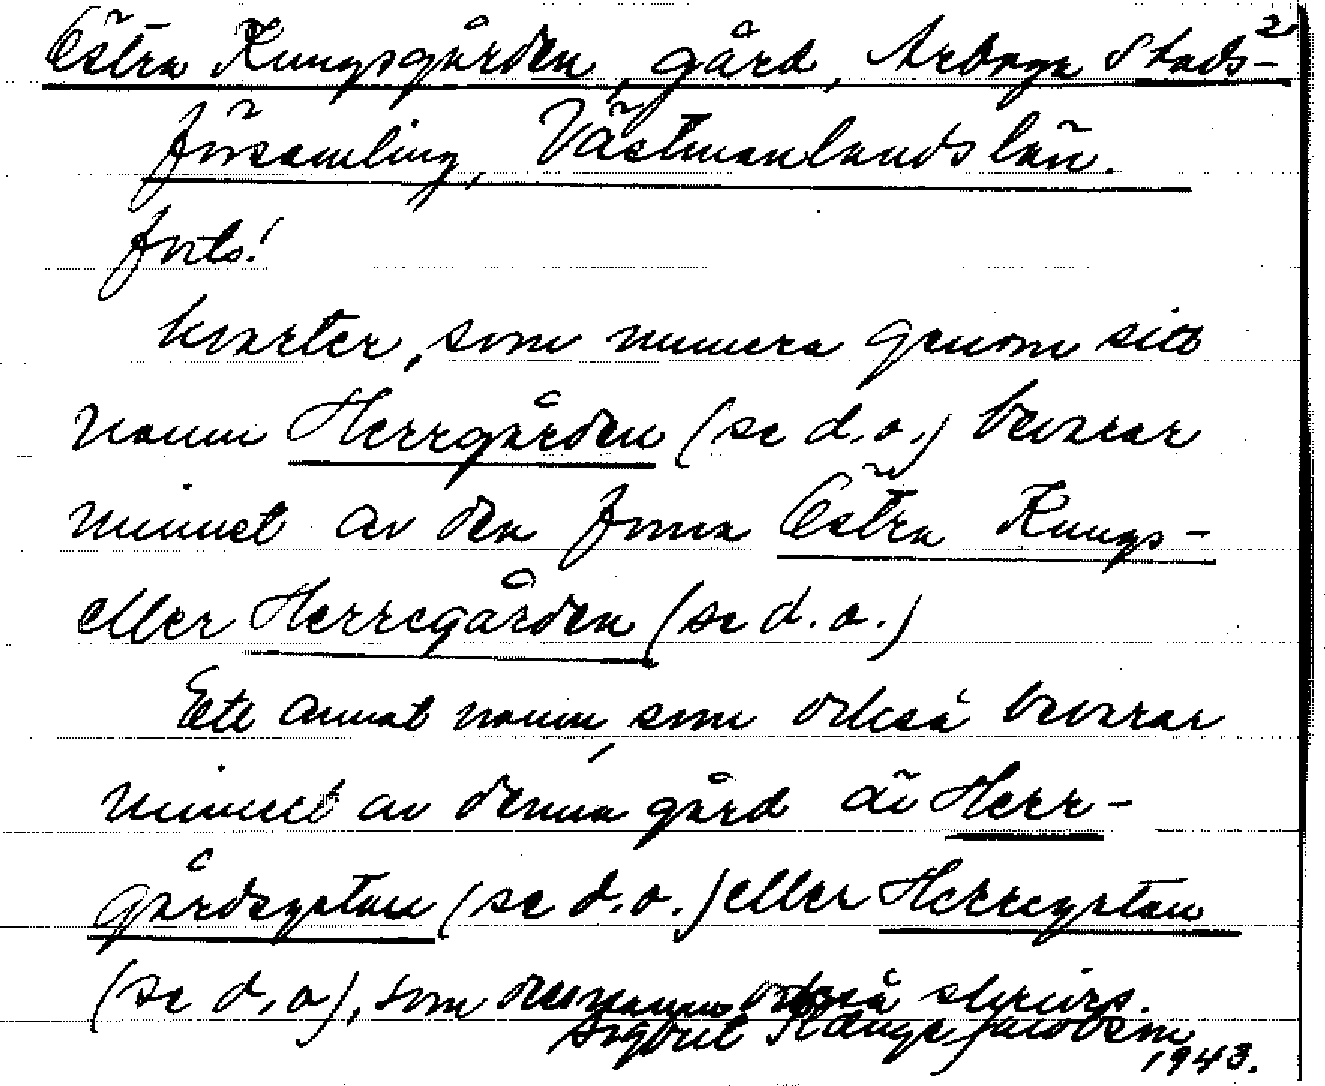 2
Östra Kungsgården, gård, Arboga Stads-
församling, Västmanlands län.
forts!
kvarter, som numera genom sitt
namn Herrgården (se d.o.) bevarar
minnet av den forna Östra Kungs-
eller Herregården (se d.o.)
Ett annat namn, som också bevarar
minnet av denna gård är Herr-
gårdsgatan (se d.o.) eller Herregatan
(se d.o), som också skrivs.
Sigbrit Plænge Jacobson
1943.